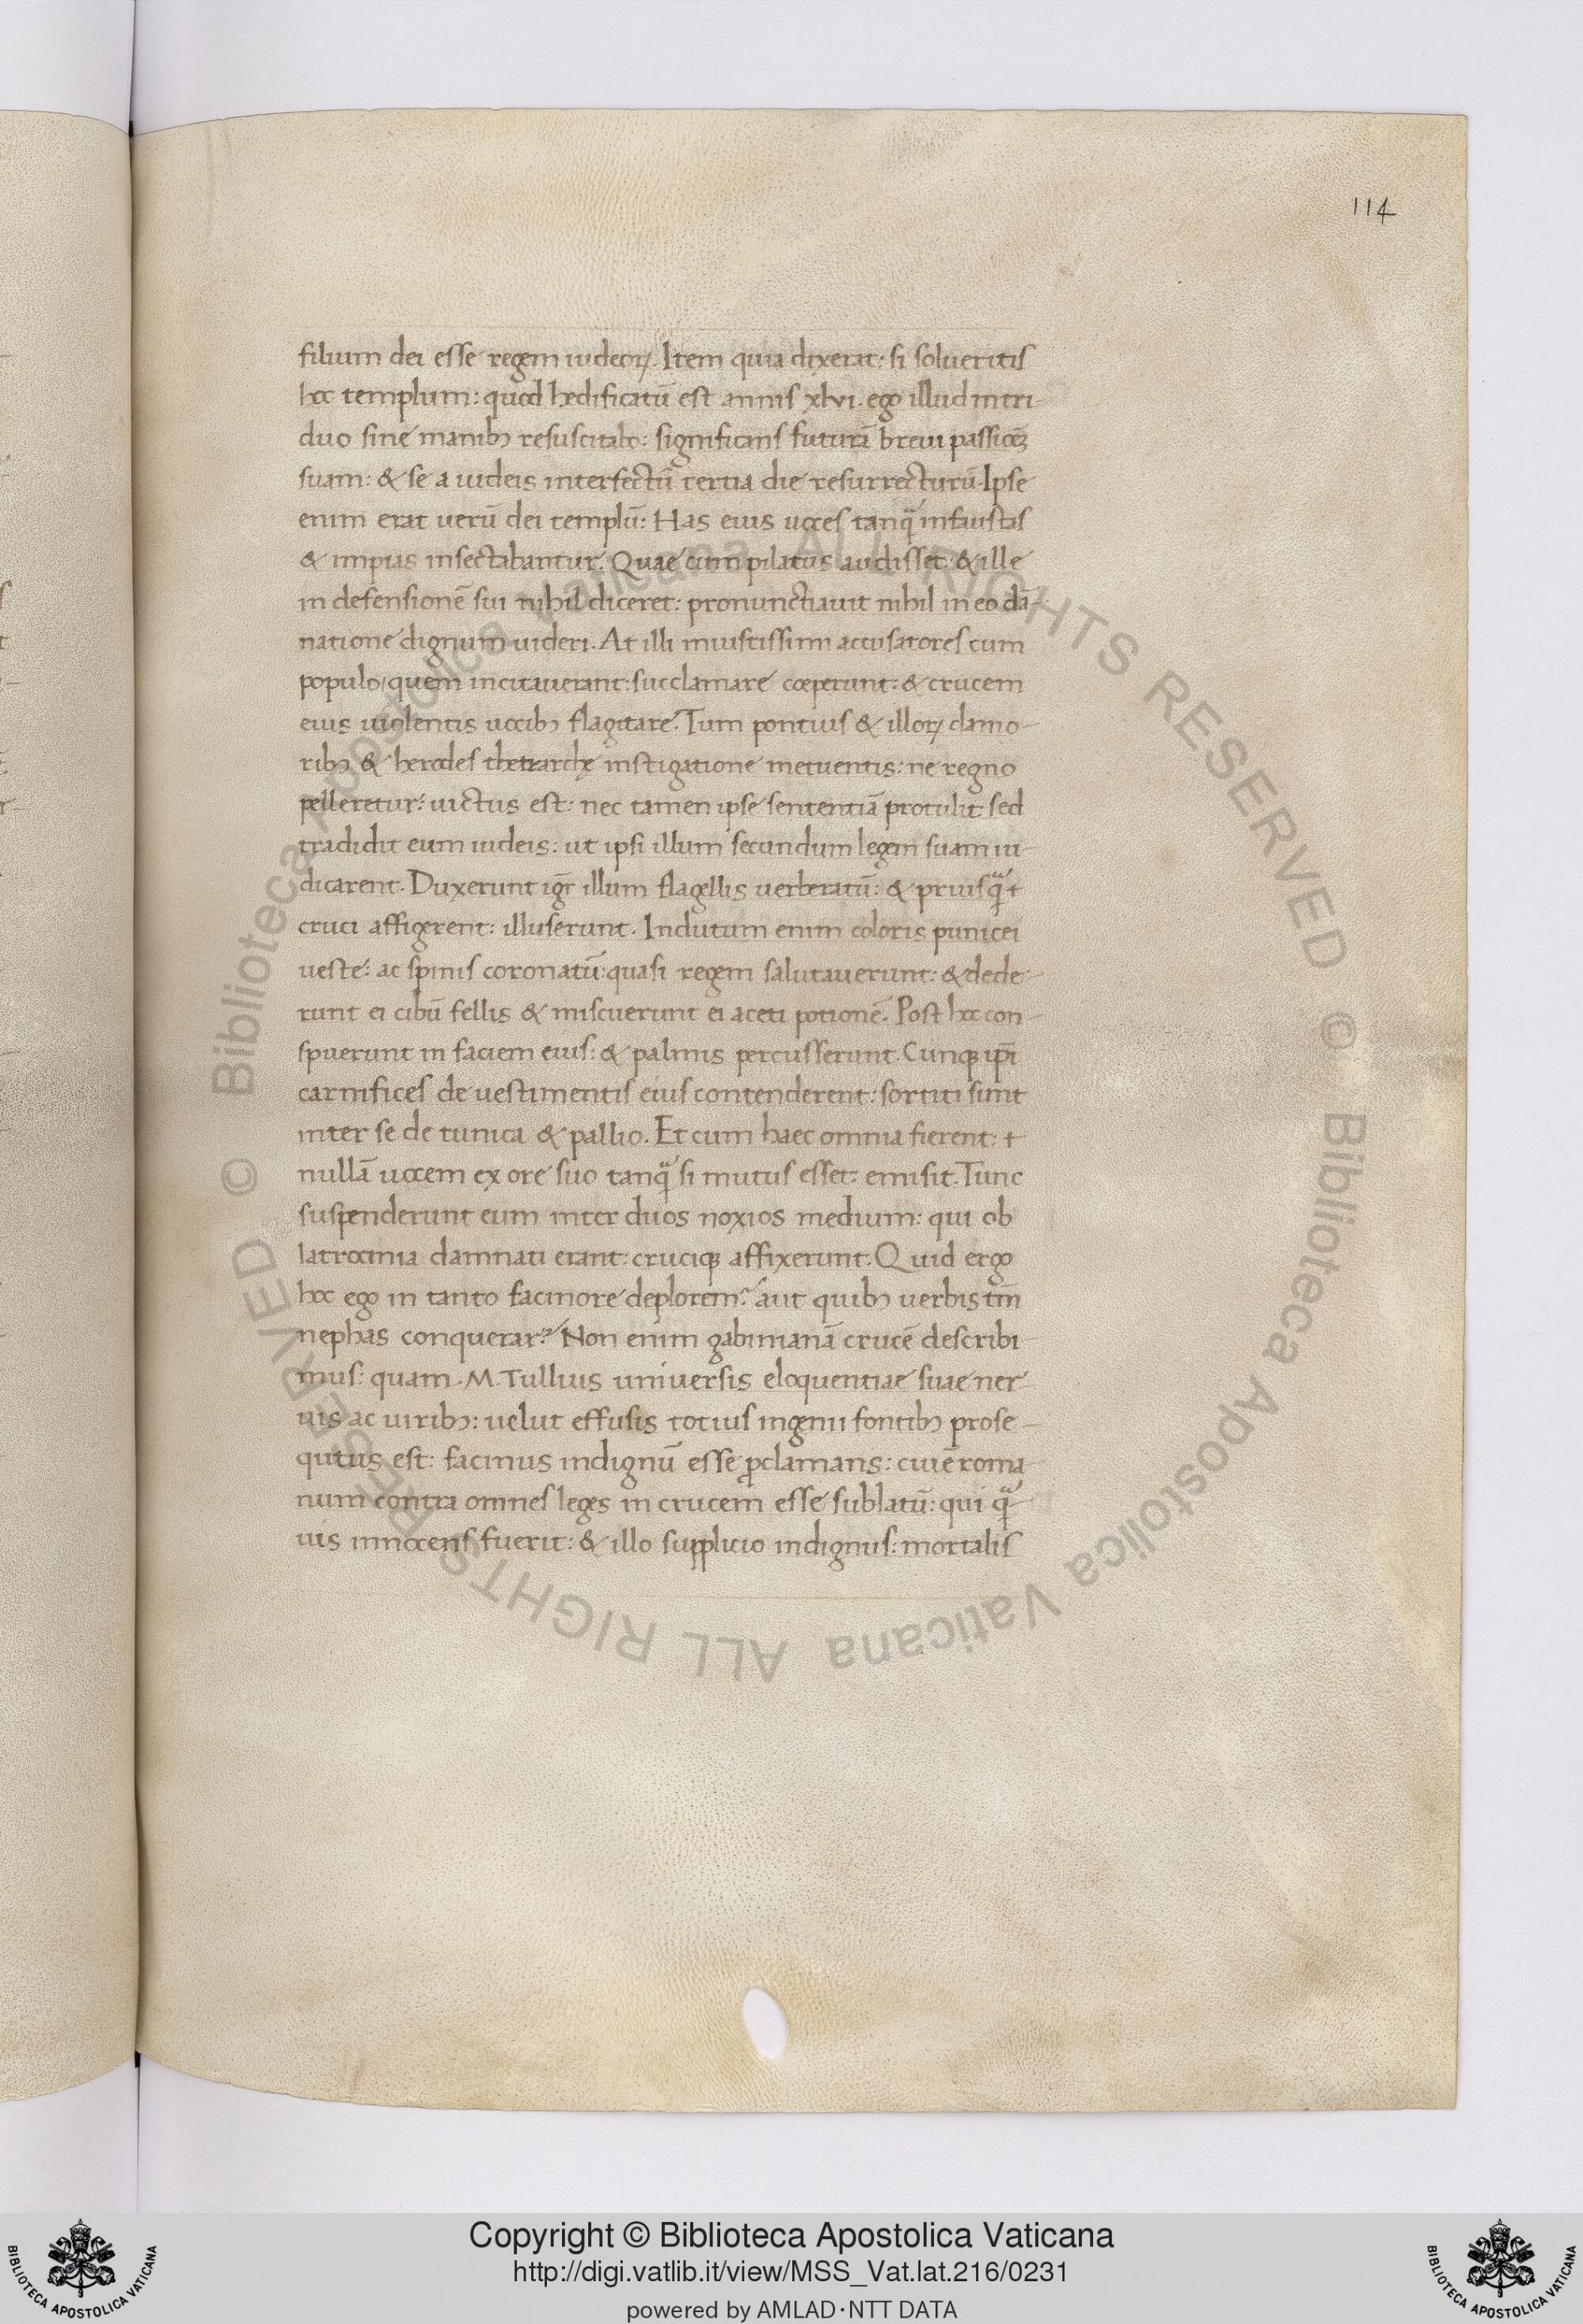 114
filium dei esse regem iudeoꝝ. Item quia dixerat: si solueritis
hoc templum: quod hedificatū est annis xlvi. ego illud in tri-
duo sine manibꝫ resuscitabo: significans futurā breui passioē
suam: & se a iudeis interfectū tertia die resurrecturū. Ipse
enim erat uerū dei templū: Has eius uoces tanq̄ infaustas
& impias insectabantur. Quae cum pilatus audisset: & ille
in defensionē sui nihil diceret: pronunctiauit nihil in eo dā-
natione dignum uideri. At illi iniustissimi accusatores cum
populo, quem incitauerant: succlamare coeperunt: & crucem
eius uiolentis uocibꝫ flagitare. Tum pontius & illoꝝ clamo-
ribꝫ & herodes thetrarchę instigatione metuentis: ne regno
pelleretur: uictus est: nec tamen ipse sententiā protulit sed
tradidit eum iudeis: ut ipsi illum secundum legem suam iu-
dicarent. Duxerunt igr̄ illum flagellis uerberatū: & priusq̄
cruci affigerent: illuserunt. Indutum enim coloris punicei
ueste: ac spinis coronatū: quasi regem salutauerunt: & dede-
runt ei cibū fellis & miscuerunt ei aceti potionē. Post hoc con-
spuerunt in faciem eius: & palmis percusserunt. Cunqꝫ ip̄i
carnifices de uestimentis eius contenderent: sortiti sunt
inter se de tunica & pallio. Et cum haec omnia fierent:
nullā uocem ex ore suo tanq̄ si mutus esset: emisit. Tunc
suspenderunt eum inter duos noxios medium: qui ob
latrocinia damnati erant: cruciqꝫ affixerunt. Quid ergo
hoc ego in tanto facinore deplorem? aut quibꝫ uerbis tm̄
nephas conquerar? Non enim gabinianā crucē describi
mus: quam M. Tullius uniuersis eloquentiae suae ner-
uis ac uiribꝫ: uelut effusis totius ingenii fontibꝫ prose-
qutus est: facinus indignū esse ꝓclamans: ciuē roma-
num contra omnes leges in crucem esse sublatū: qui q̄
uis innocens fuerit: & illo supplicio indignus: mortalis
© Biblioteca Apostolica Vaticana ALL RIGHTS RESERVED
© Biblioteca Apostolica Vaticana ALL RIGHTS RESERVED
Copyright © Biblioteca Apostolica Vaticana
http://digi.vatlib.it/view/MSS_Vat.lat.216/0231
powered by AMLAD·NTT DATA
BIBLIOTECA APOSTOLICA VATICANA
BIBLIOTECA APOSTOLICA VATICANA